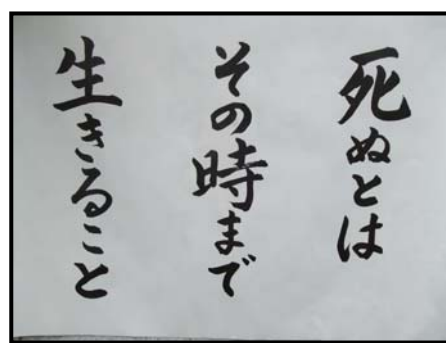 死ぬとは
その時まで
生きること